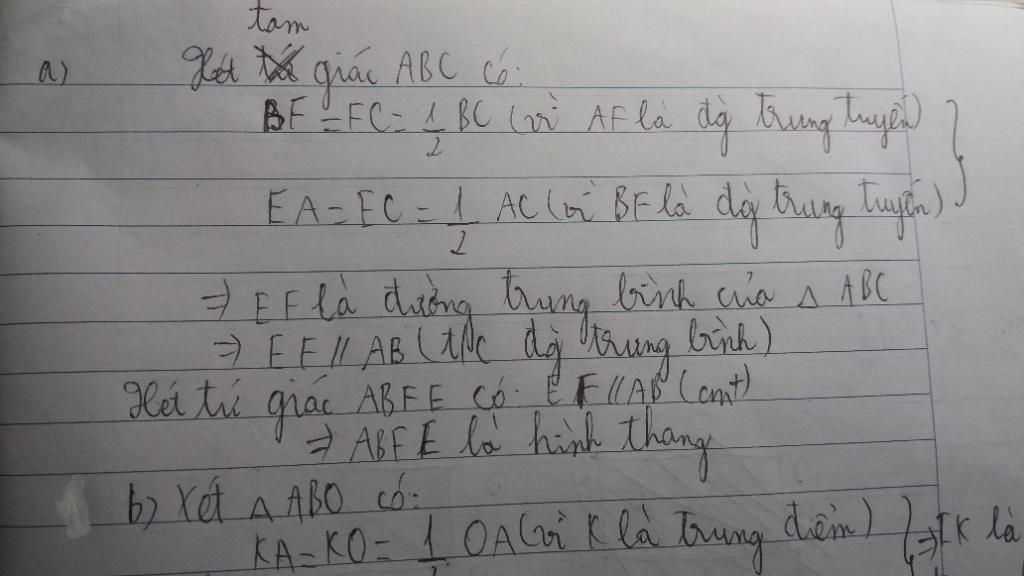 tam
a) Xét giác ABC có:
BF = FC = 1/2 BC (vì AF là đg trung tuyến)
EA = EC = 1/2 AC (vì BF là đg trung tuyến)
=> EF là đường trung bình của Δ ABC
=> EF // AB (t/c đg trung bình)
Xét tứ giác ABFE có: EF // AB (cmt)
=> ABFE là hình thang
b) Xét Δ ABO có:
KA = KO = 1/2 OA (vì K là trung điểm) } => IK là